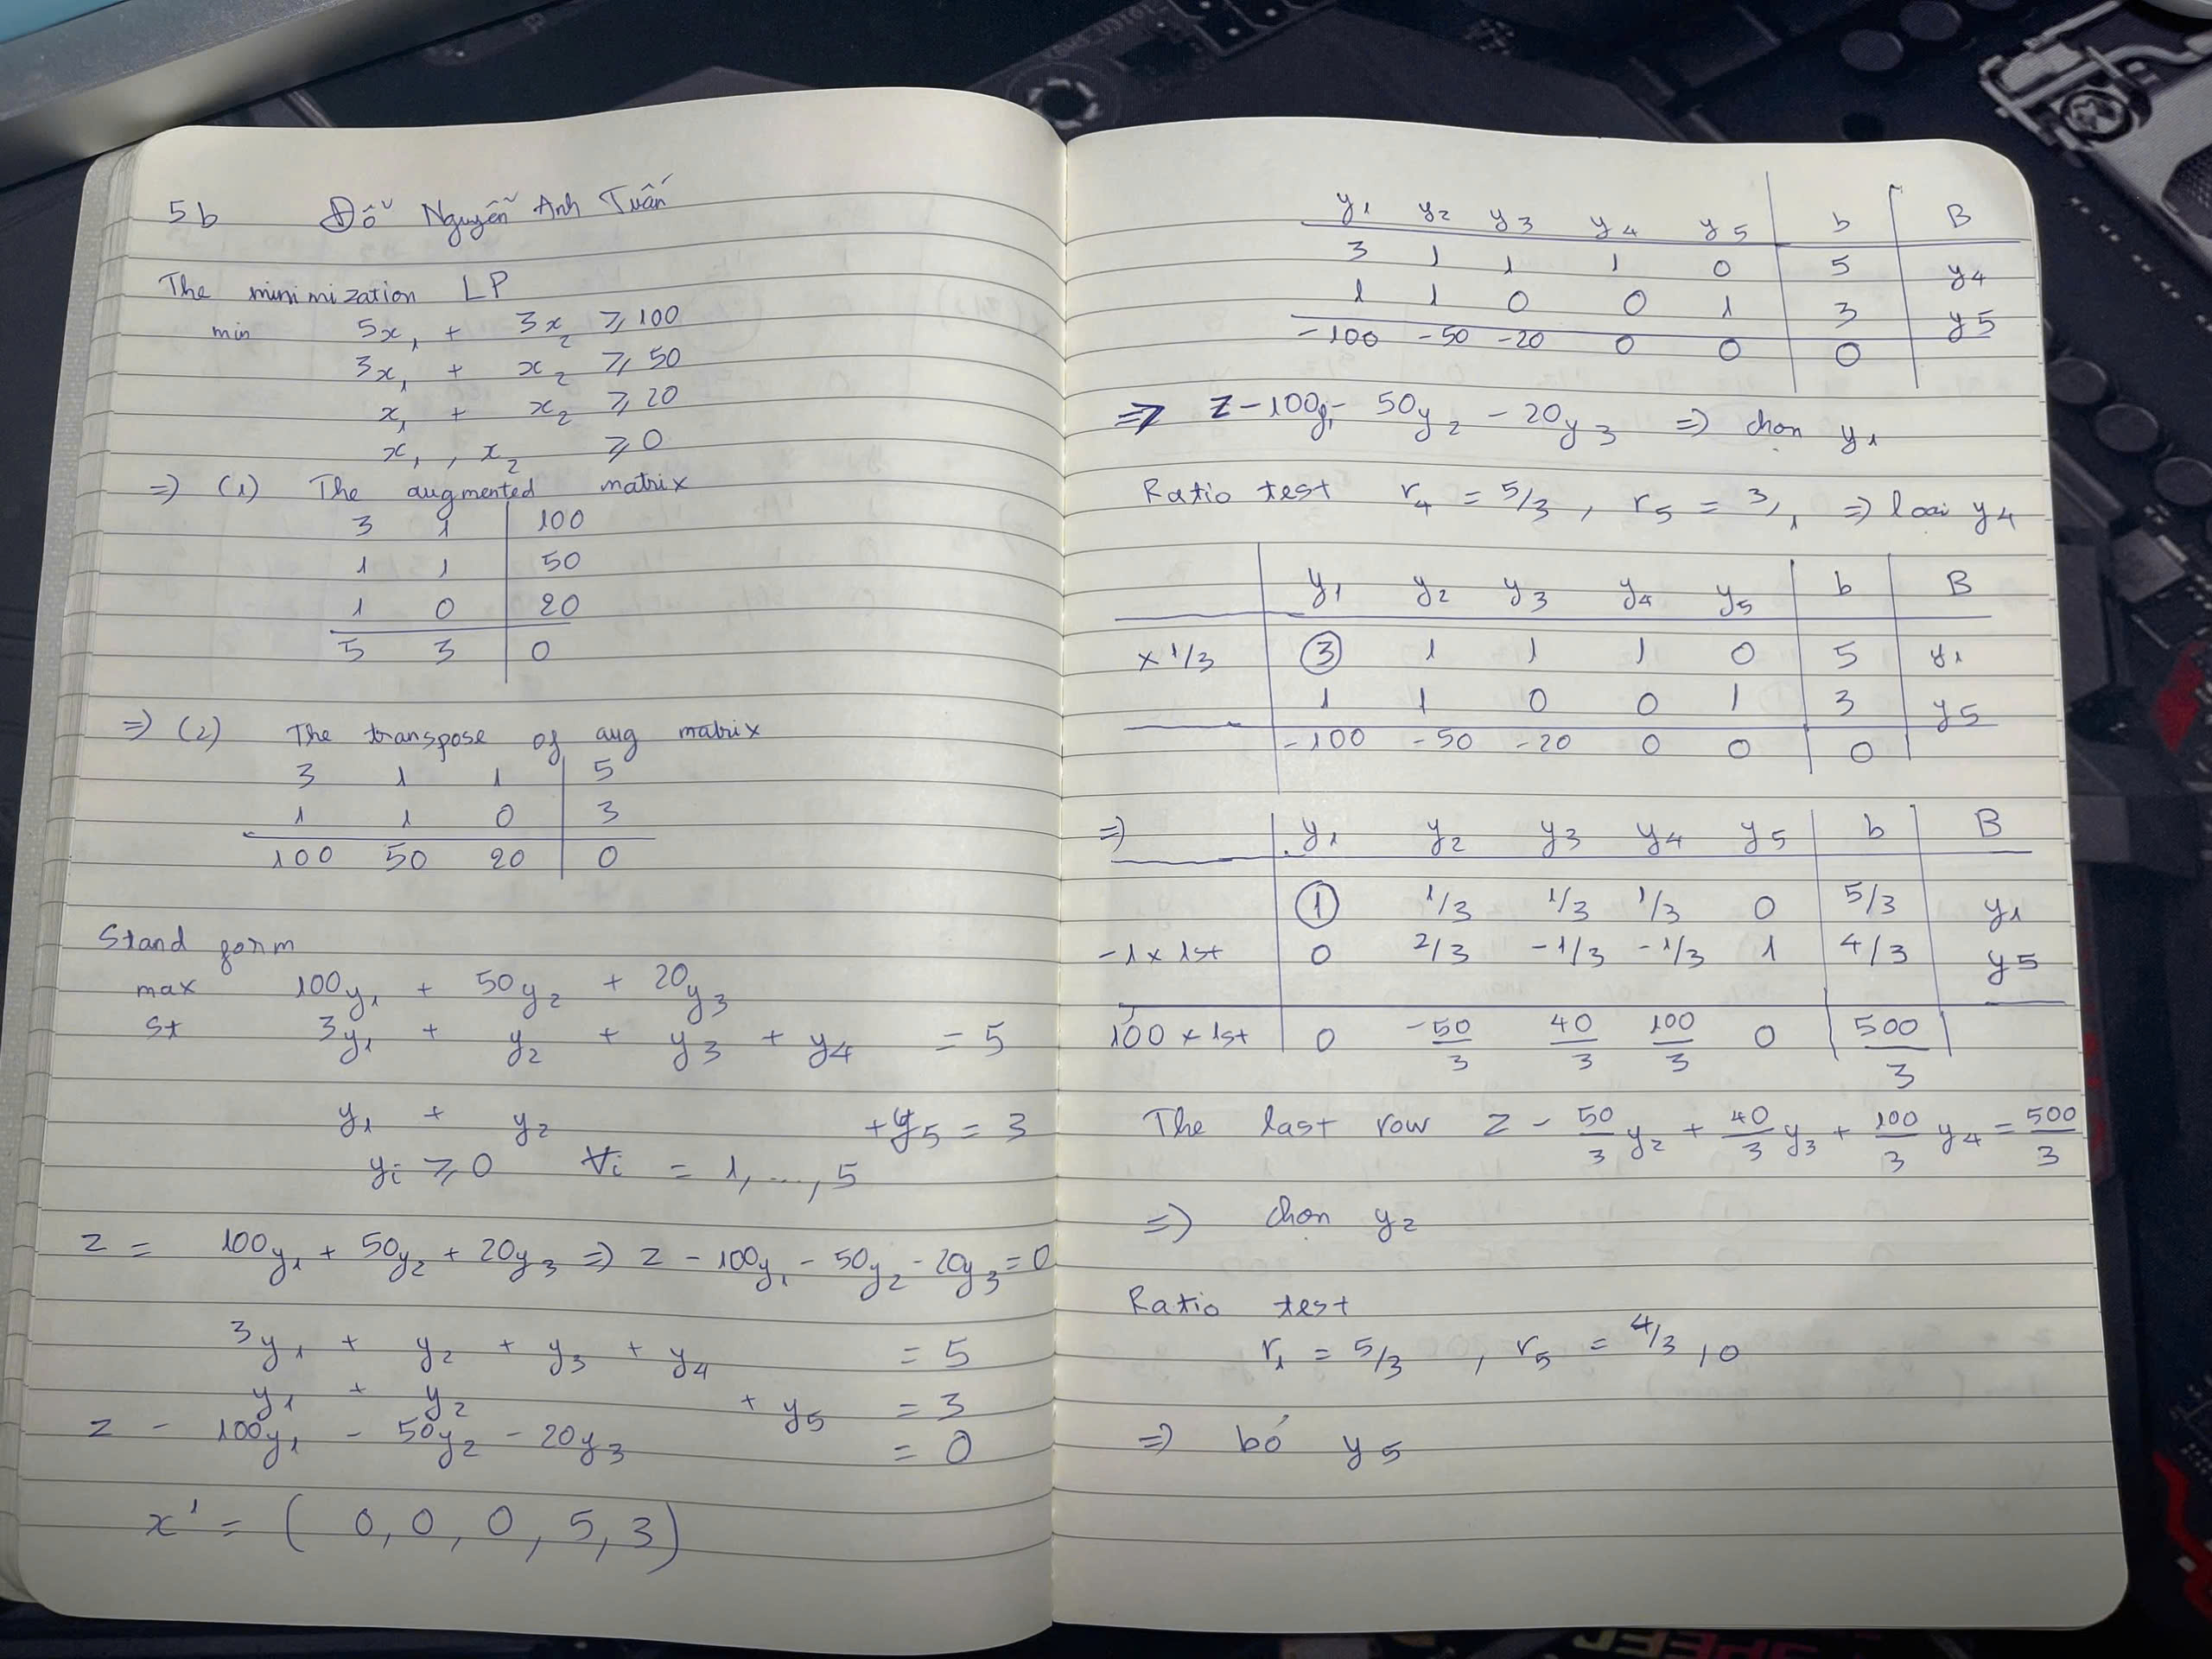 5b Đỗ Nguyễn Anh Tuấn
The minimization LP
min 5x₁ + 3x₂ ⩾ 100
3x₁ + x₂ ⩾ 50
x₁ + x₂ ⩾ 20
x₁, x₂ ⩾ 0
=> (1) The augmented matrix
3 1 | 100
1 1 | 50
1 0 | 20
5 3 | 0
=> (2) The transpose of aug matrix
3 1 1 | 5
1 1 0 | 3
100 50 20 | 0
Stand form
max 100y₁ + 50y₂ + 20y₃
St 3y₁ + y₂ + y₃ + y₄ = 5
y₁ + y₂ + y₅ = 3
yᵢ ⩾ 0 ∀i = 1, ..., 5
z = 100y₁ + 50y₂ + 20y₃ => z - 100y₁ - 50y₂ - 20y₃ = 0
3y₁ + y₂ + y₃ + y₄ = 5
y₁ + y₂ + y₅ = 3
z - 100y₁ - 50y₂ - 20y₃ = 0
x' = ( 0, 0, 0, 5, 3)
y₁ y₂ y₃ y₄ y₅ | b | B
3 1 1 1 0 | 5 | y₄
1 1 0 0 1 | 3 | y₅
-100 -50 -20 0 0 | 0
=> Z - 100y₁ - 50y₂ - 20y₃ => chọn y₁
Ratio test r₄ = 5/3, r₅ = 3/1 => loại y₄
y₁ y₂ y₃ y₄ y₅ | b | B
x 1/3 | 3 1 1 1 0 | 5 | y₁
1 1 0 0 1 | 3 | y₅
-100 -50 -20 0 0 | 0
=> | y₁ y₂ y₃ y₄ y₅ | b | B
1 1/3 1/3 1/3 0 | 5/3 | y₁
-1 x 1st | 0 2/3 -1/3 -1/3 1 | 4/3 | y₅
100 x 1st | 0 -50/3 40/3 100/3 0 | 500/3 |
The last row Z - 50/3 y₂ + 40/3 y₃ + 100/3 y₄ = 500/3
=> chon y₂
Ratio test
r₁ = 5/3, r₅ = 4/3, 0
=> bỏ y₅